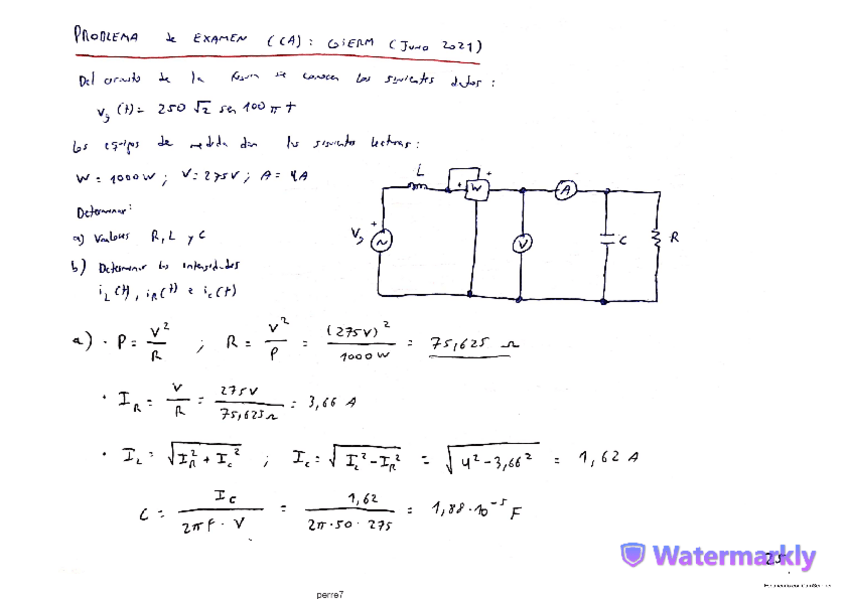 PROBLEMA de EXAMEN (CA): GIERM (JUNIO 2021)
Del circuito de la figura se conocen los siguientes datos:
Vg (t) = 250 √2 sen 100 π t
Los equipos de medida dan las siguientes lecturas:
W = 1000 W ; V = 275 V ; A = 4 A
Determinar:
a) Valores R, L y C
b) Determinar las intensidades
iL (t), iR (t) e iC (t)
L
+
W
+
A
Vg
+
~
V
C
R
a) · P = V² / R ; R = V² / P = (275V)² / 1000 W = 75,625 Ω
· IR = V / R = 275 V / 75,625 Ω = 3,66 A
· IL = √(IR² + IC²) ; IC = √(IL² - IR²) = √(4² - 3,66²) = 1,62 A
C = IC / (2π f · V) = 1,62 / (2π · 50 · 275) = 1,88 · 10⁻⁵ F
Watermarkly
25
perre7